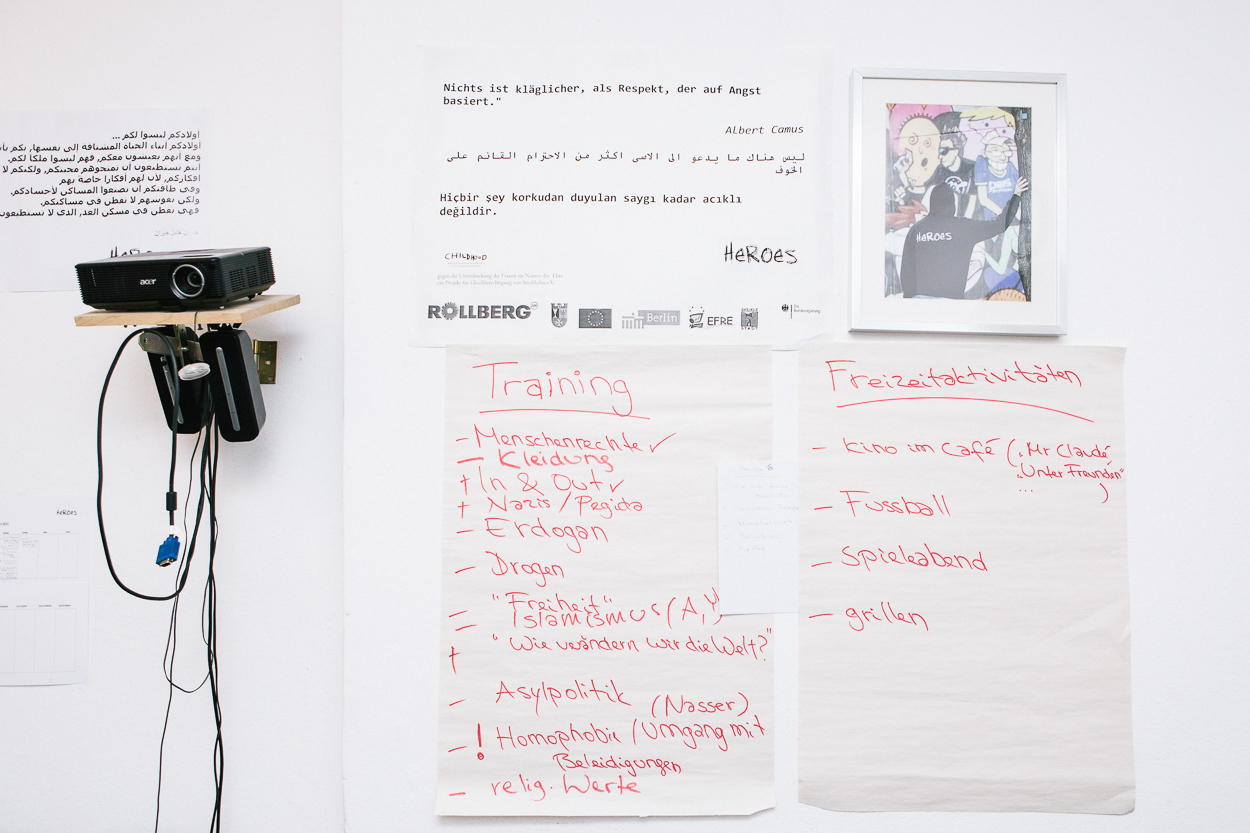 اولادكم ليسوا لكم ...
اولادكم ابناء الحياة المشتاقة إلى نفسها, بكم
ومع أنهم يعيشون معكم, فهم ليسوا ملكا لكم.
أنتم تستطيعون أن تمنحوهم محبتكم, ولكنكم لا
افكاركم, لأن لهم افكارا خاصة بهم
وفي طاقتكم أن تصنعوا المساكن لأجسادكم.
ولكن نفوسهم لا تقطن في مساكنكم.
فهي تقطن في مسكن الغد, الذي لا تستطيعون
HEROES
acer
HEROES
Nichts ist kläglicher, als Respekt, der auf Angst
basiert."
Albert Camus
ليس هناك ما يدعو الى الاسى اكثر من الاحترام القائم على
الخوف
Hiçbir şey korkudan duyulan saygı kadar acıklı
değildir.
CHILDHOOD
HeROES
gegen die Unterdrückung der Frauen im Namen der Ehre
ein Projekt für Gleichberechtigung von Strohhalm e.V.
ROLLBERG
Berlin
EFRE
HeROES
Training
- Menschenrechte ✓
- Kleidung
+ In & Out ✓
+ Nazis / Pegida
- Erdogan
- Drogen
- "Freiheit"
- Islamismus (A, Y)
+ "Wie verändern wir die Welt?"
- Asylpolitik (Nasser)
- ! Homophobie / Umgang mit
Beleidigungen
- relig. Werte
Freizeitaktivitäten
- Kino im Café ("Mr Claude",
"Unter Freunden"
... )
- Fussball
- Spieleabend
- grillen